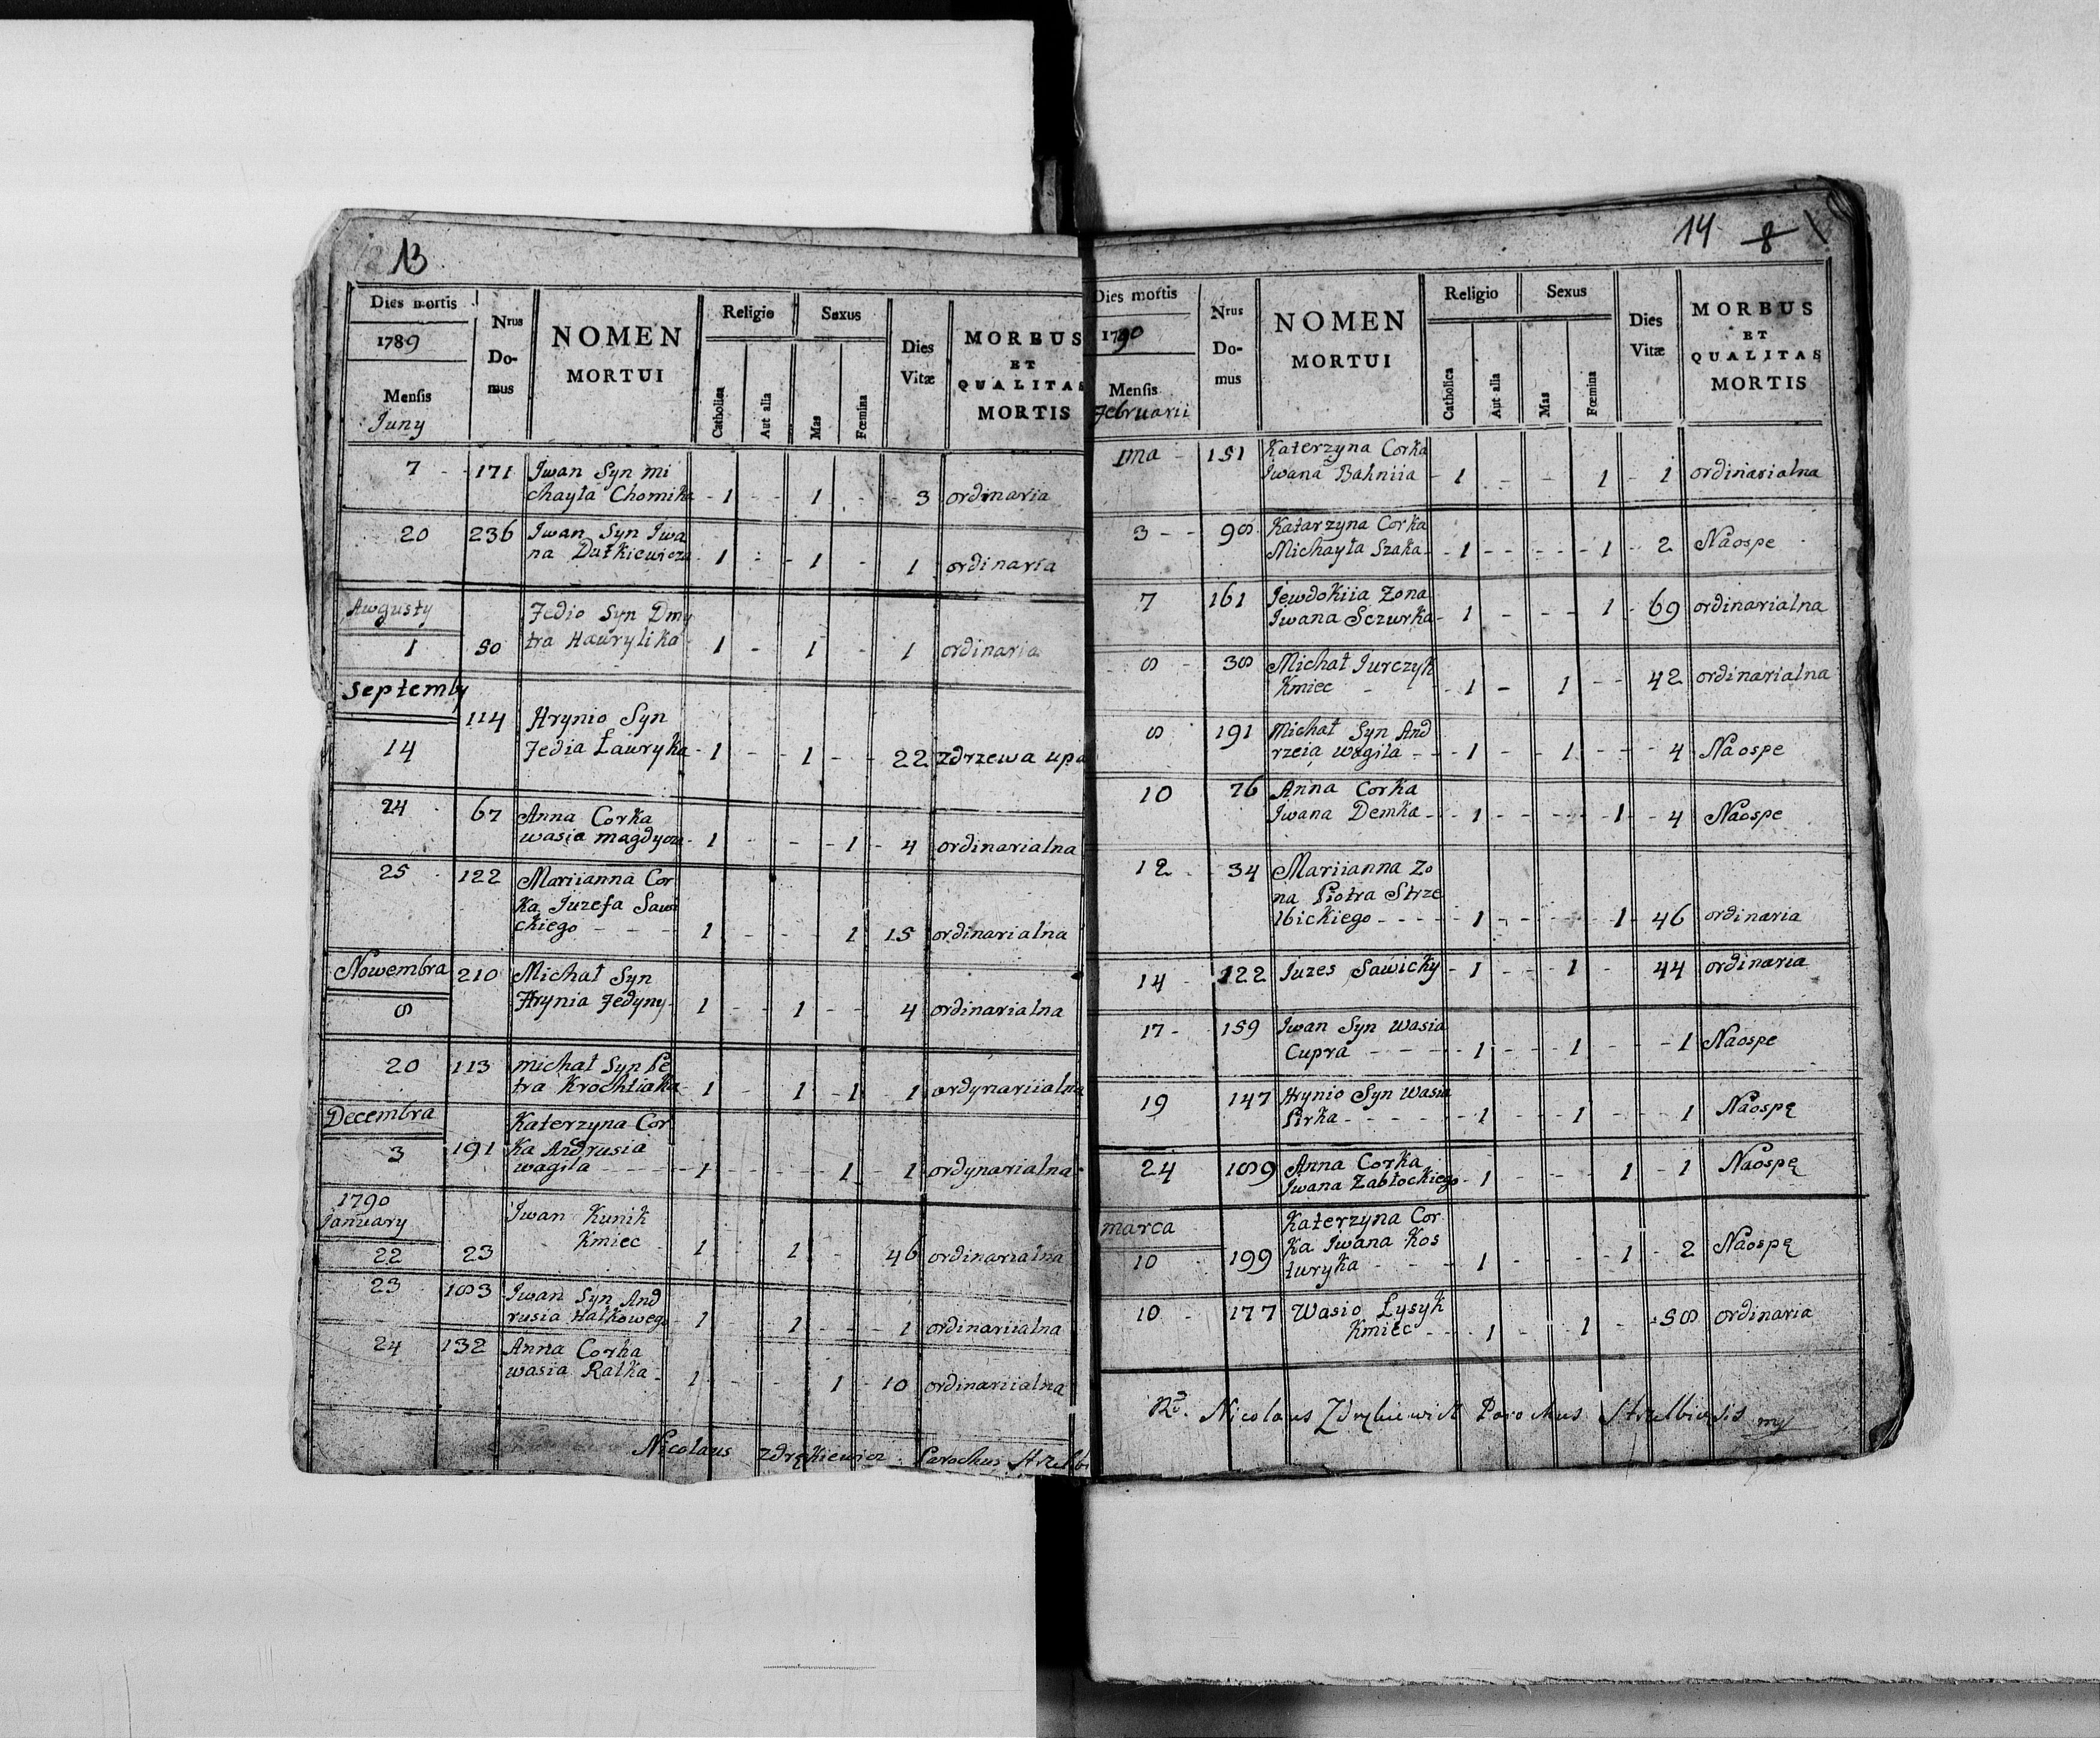 13
Dies mortis
Nrus
Do-
mus
NOMEN
MORTUI
Religio
Sexus
Dies
Vitæ
MORBUS
ET
QUALITAS
MORTIS
1789
Mensis
Juny
Catholica
Aut alia
Mas
Fœmina
7 - 171 Jwan Syn Mi
chayła Chomika - 1 - - 1 - - 3 ordinaria
20 236 Jwan Syn Jwa
na Dutkiewicza - 1 - - 1 - 1 ordinaria
Awgusty
Fedio Syn Dmy
1 50 tra Hawrylika 1 - 1 - 1 ordinaria
Septemby
114 Hrynio Syn
14 Fedia Ławryka - 1 - - 1 - - 22 zdrzewa upa
24 67 Anna Corka
wasia magdycza - 1 - - - 1 - 4 ordinarialna
25 122 Mariianna Cor
Ka Juzefa Sawi
ckiego - - - 1 - - - 1 15 ordinarialna
Nowembra 210 Michał Syn
8 Hrynia Fedyny - 1 - - 1 - - 4 ordinarialna
20 113 michał Syn Pe
tra Krochtiaka - 1 - 1 - 1 1 ordynariialna
Decembra Katerzyna Cor
3 191 Ka Andrusia
wagila - - - - 1 - - - - 1 - 1 ordynarialna
1790
January Jwan Kunik
22 23 Kmiec - 1 - 1 - 46 ordinarialna
23 183 Jwan Syn And
rusia Halkowego - 1 - 1 - - - 1 ordinariialna
24 132 Anna Corka
wasia Ralka - 1 - - - 1 - 10 ordinariialna
Nicolaus Zdrękiewicz Parochus Strzelbi
14 8
Dies mortis
Nrus
Do-
mus
NOMEN
MORTUI
Religio
Sexus
Dies
Vitæ
MORBUS
ET
QUALITAS
MORTIS
1790
Mensis
Februarii
Catholica
Aut alia
Mas
Fœmina
1ma - 151 Katerzyna Corka
Jwana Bahniia - 1 - - - 1 - 1 ordinarialna
3 - - 98 Katarzyna Corka
Michayła Szaka - - 1 - - - - - 1 - 2 Naospe
7 161 Jewdokiia Zona
Jwana Sczurka - 1 - - - 1 - 69 ordinarialna
8 - 38 Michał Jurczyk
Kmiec - - 1 - 1 - - 42 ordinarialna
8 191 Michał Syn And
rzeia wagila - - - 1 - - 1 - - - 4 Naospe
10 76 Anna Corka
Jwana Demka - - 1 - - - - - 1 - - 4 Naospe
12 - - 34 Mariianna Zo
na Piotra Strze
lbickiego - - - - - 1 - - - - 1 - 46 ordinaria
14 - 122 Juzef Sawicky - 1 - - - 1 - 44 ordinaria
17 - - 159 Jwan Syn Wasia
Cupra - - - - 1 - - - 1 - - - 1 Naospe
19 147 Hrynio Syn Wasia
Pirka - - - - - - 1 - - - 1 - - 1 Naospę
24 189 Anna Corka
Jwana Zabłockiego - 1 - - - 1 - 1 Naospę
marca Katerzyna Cor
Ka Jwana Kos
10 199 turyka - - - 1 - - - 1 - 2 Naospę
10 - 177 Wasio Łysyk
Kmiec - - 1 - - 1 - - 58 ordinaria
Rd. Nicolaus Zdrękiewicz Parochus Strzelbicensis mp